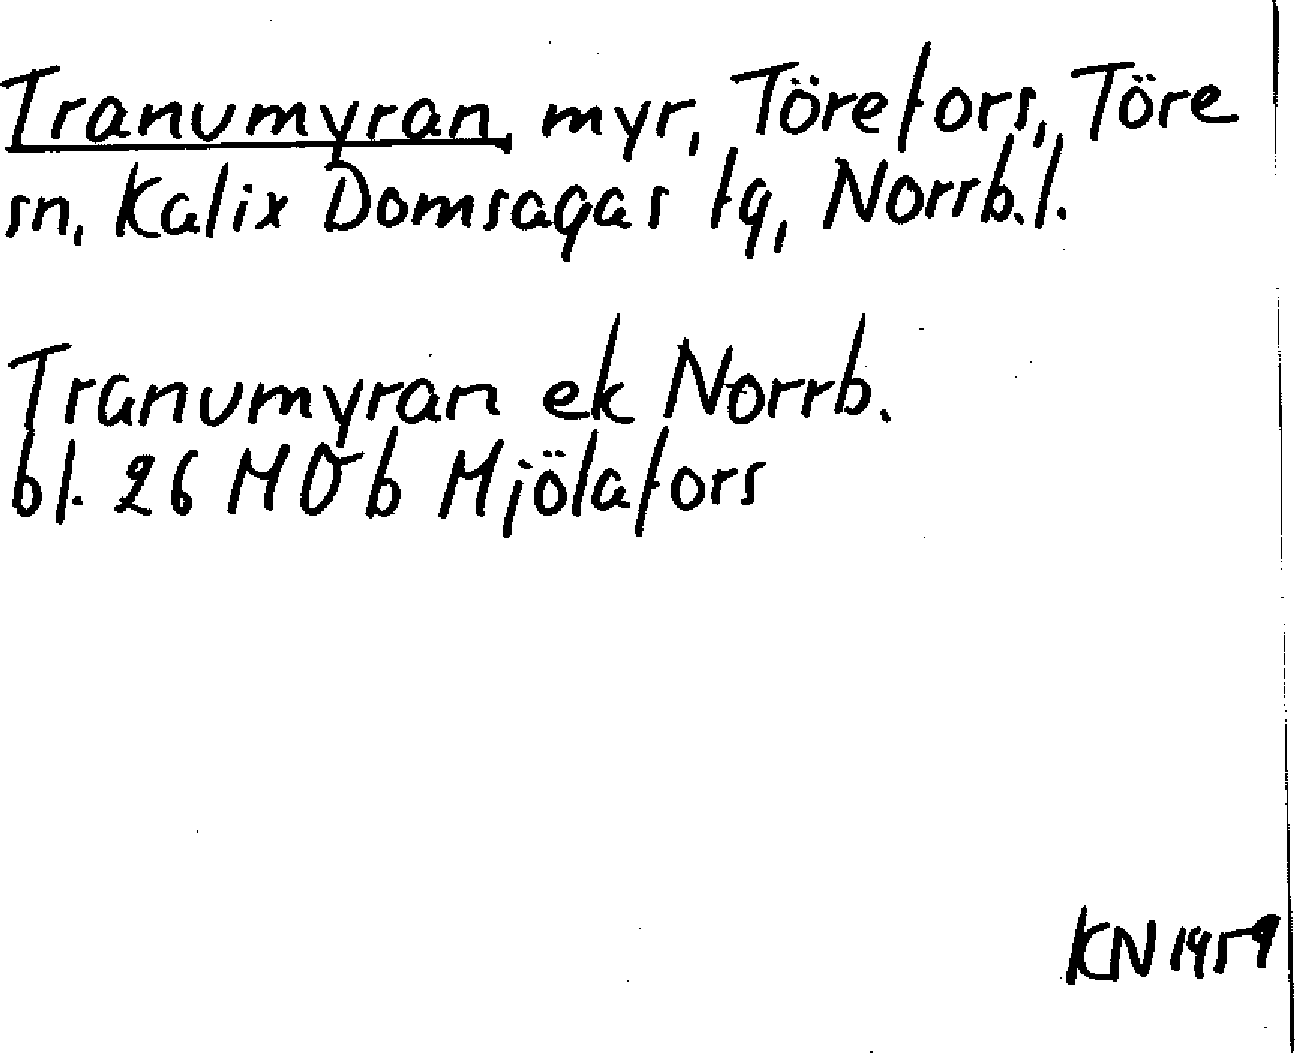 Tranumyran, myr, Törefors, Töre
sn, Kalix Domsagas tg, Norrb.l.
Tranumyran ek Norrb.
bl. 26 M Ö b Mjölafors
KN 1959